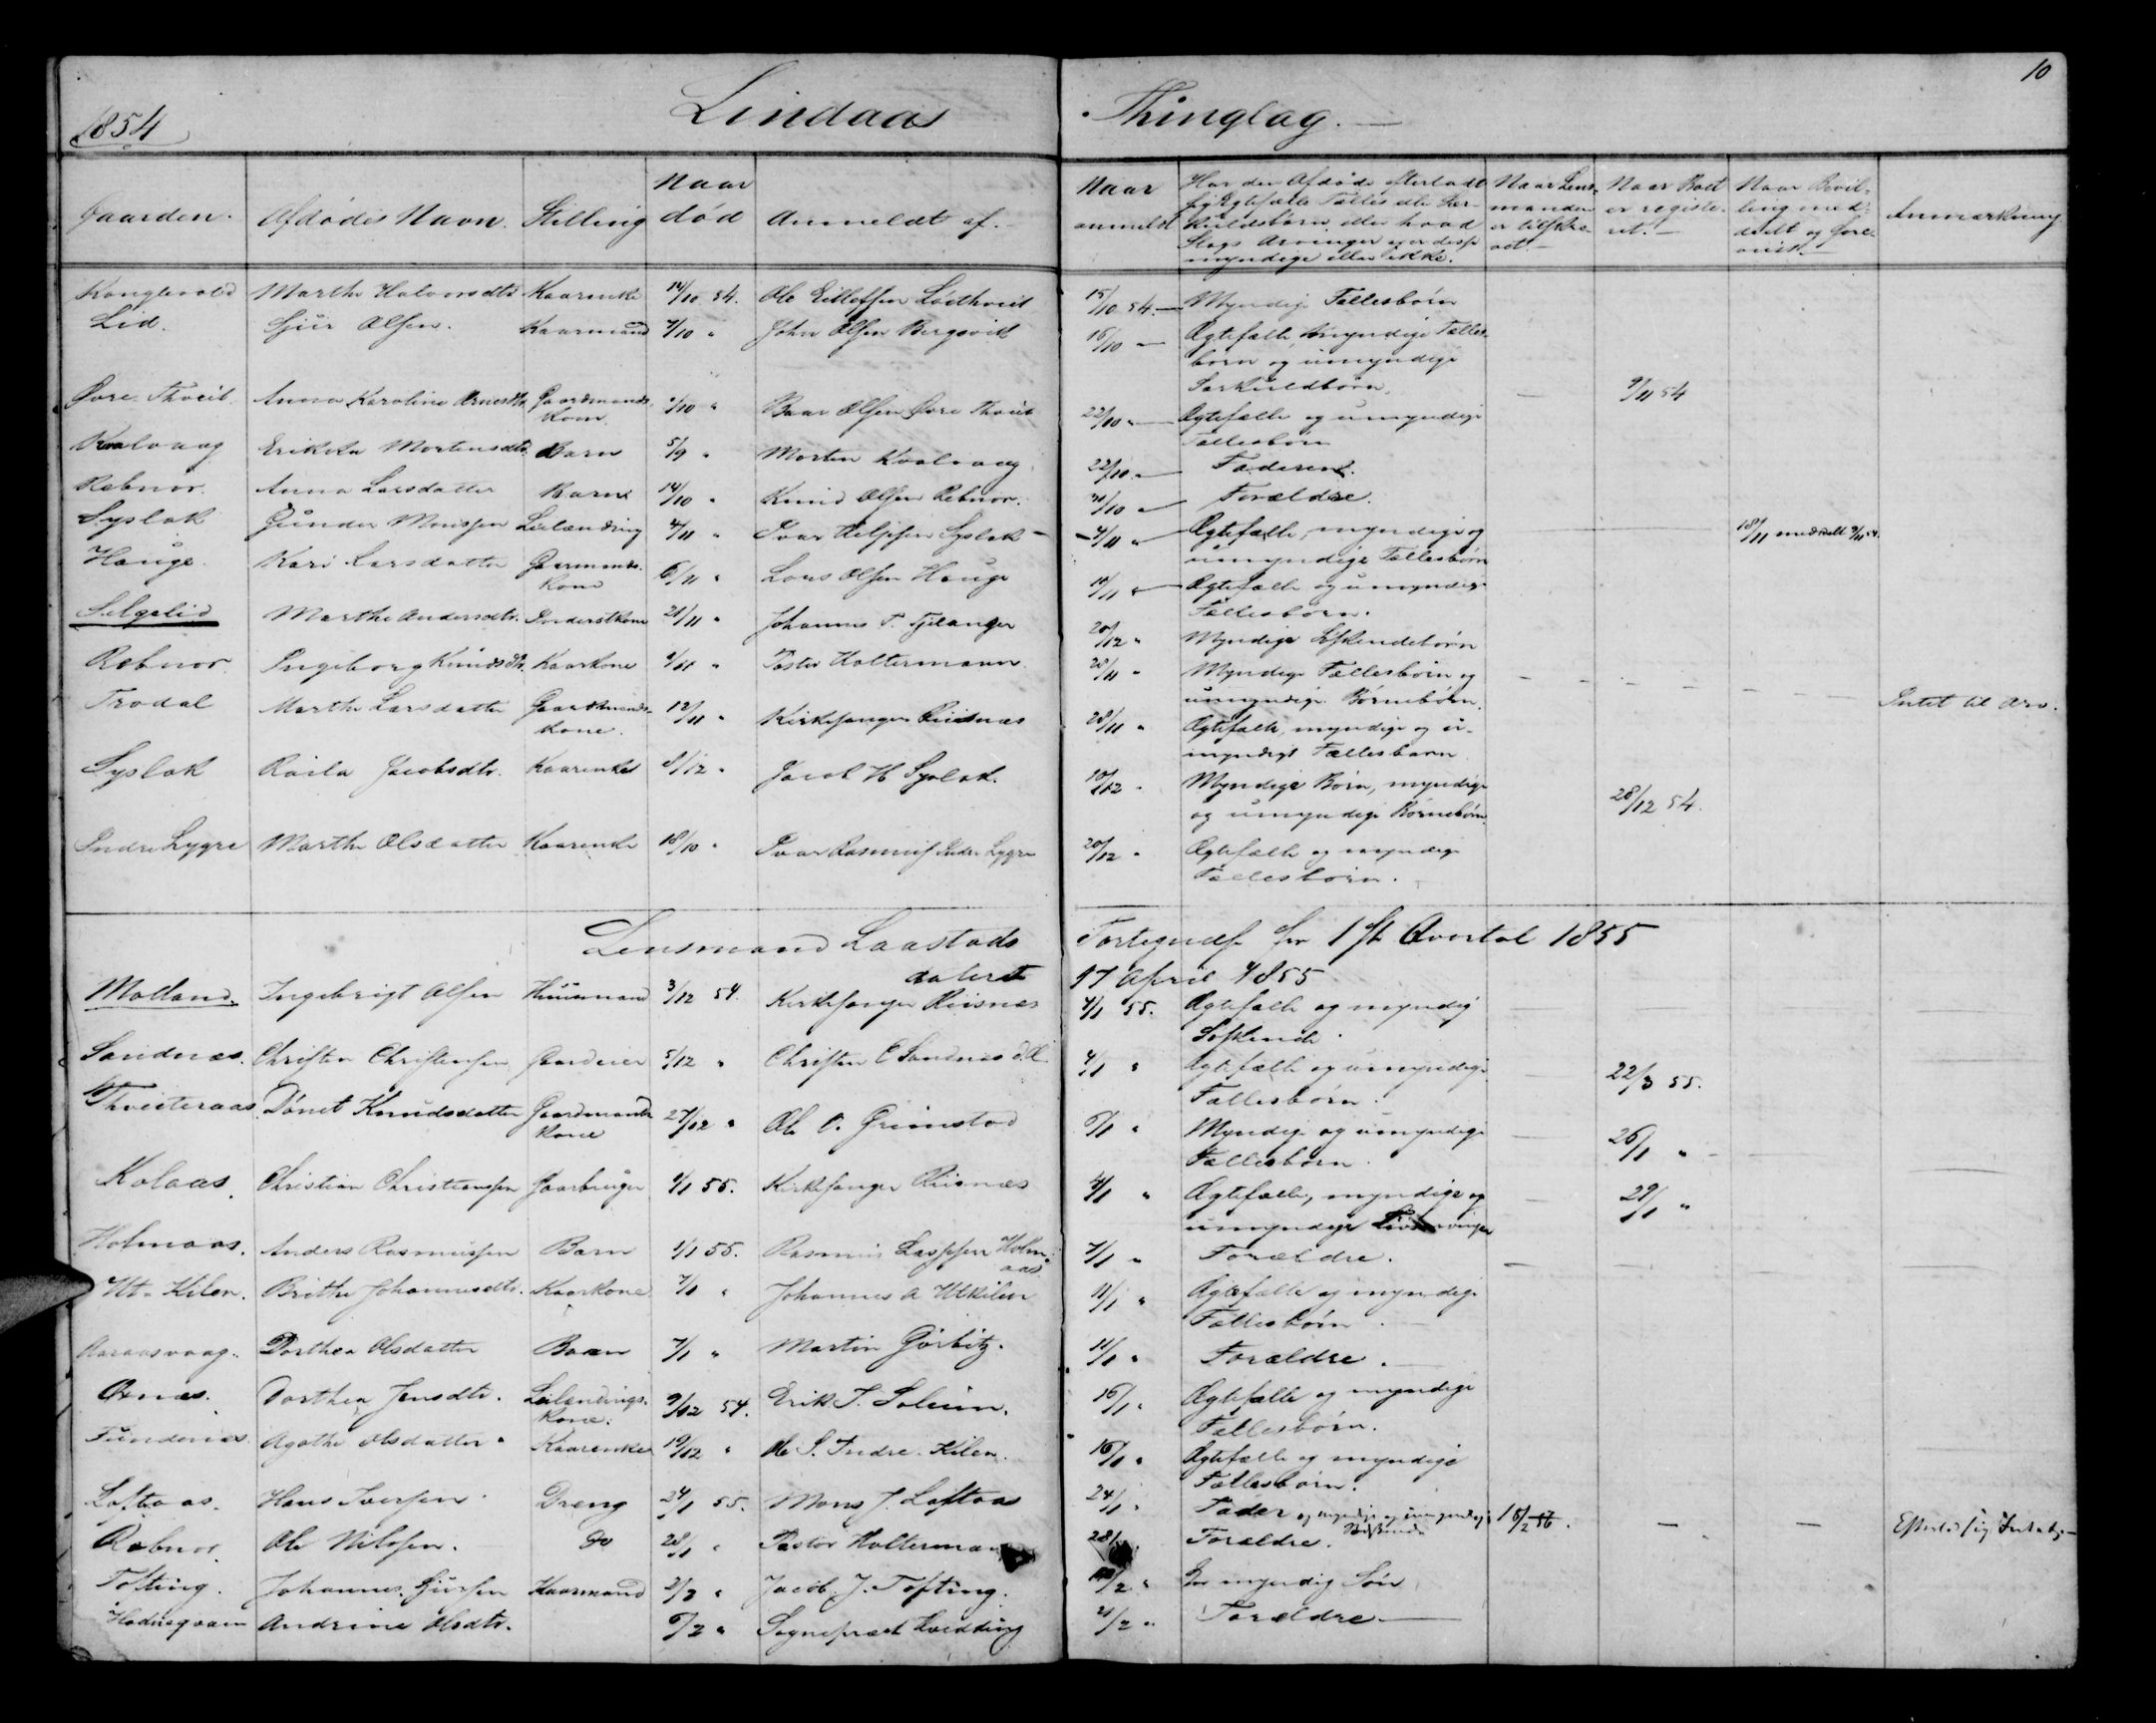 10
1854
Lindaas Thinglag.
Gaarden. Afdødes Navn. Stilling Naar død Anmeldt af. Naar anmeldt Har den Afdøde efterladt sig Egtefælle Fælles eller Særkuldsbørn, eller hvad Slags Arvinger og er disse myndige eller ikke. Naar Lensmanden er tilskrevet. Naar Boet er registeret. Naar Bevilling meddeelt og forevist. Anmærkning
Marthe Halvorsdtr Kaarenke 14/10 54. Ole Eilefsen 15/10 54. Myndige Fællesbørn
Lid. Sjur Olsen. Kaarmand 7/10 " John Olsen Bergsvik 16/10 Ægtefælle, myndige Fælles-
børn og umyndige
Særkuldbørn. 9/11 54
Øvre Thveit. Anna Karoline Arnesdtr Gaardmands- /10 " Baar Olsen Øvre Thveit 22/10 " Ægtefælle og umyndige
kone. Fællesbørn
Kvalvaag Erikka Mortensdtr. Barn 5/9 " Morten Kvalvaag 22/10 " Faderen.
Rebnor. Anna Larsdatter Barn 14/10 " Knud Olsen Rebnor. /10 Forældre.
Syslak Gunder Monssen Leilænding 4/11 " Ivar Syslak 4/11 " Ægtefælle, myndige og 18/11 meddelt
umyndige Fællesbørn
Hauge. Kari Larsdatter Gaarmands- 6/11 " Lars Olsen Hauge 14/11 " Ægtefælle og umyndige
kone Fællesbørn.
Selgelid Marthe Andersdtr. Inderstkone 21/11 " Johannes T. Fjelanger 20/12 " Myndige Søskendebørn
Rebnor. Ingeborg Knudsdtr. Kaarkone 9/11 " Pastor Holtermann 28/11 " Myndige Fællesbørn og
umyndige Børnebørn. Intet til Arv.
Trodal Marthe Larsdatter Gaardmands- 12/11 " Kirkesanger Riisnæs 28/11 " Ægtefælle, myndige og u-
kone. myndigt Fællesbarn
Syslak Raila Jacobsdtr. Kaarenke 8/12 " Jacob H Syslak. 10/12 " Myndige Børn, myndige
og umyndige Børnebørn. 28/12 54.
Indre Lygre Marthe Olsdatter Kaarenke 18/10 " Ivar Rasmus Indre Lygre 20/12 " Ægtefælle og myndige
Fællesbørn.
Lensmand Laastads Fortegnelse for 1ste Qvartal 1855
dateret 17 April 1855
Molland. Ingebrigt Olsen Huusmand 3/12 54. Kirkesanger Riisnæs 4/1 55. Ægtefælle og myndig
Søskende.
Sandnæs. Christen Christensen Gaardeier 5/12 " Christen C Sandnæs 4/1 " Ægtefælle og umyndige 22/3 55.
Fællesbørn.
Thveiteraas. Dønet Knudsdatter Gaardmands 27/12 " Ole O. Grimstad 6/1 " Myndige og umyndige 26/1 "
kone Fællesbørn.
Kolaas. Christian Christiansen Gaarbruger 4/1 55. Kirkesanger Riisnæs 4/1 " Ægtefælle, myndige og 29/1 "
umyndige Livsarvinger
Holmaas. Anders Rasmussen Barn 1/1 55. Rasmus Lassesen Holm- 7/1 " Forældre.
aas
Ut-Kilen. Brithe Johannesdtr. Kaarkone 7/1 " Johannes A Utkilen 11/1 " Ægtefælle og myndige
Fællesbørn
Aaraasvaag. Dorthea Olsdatter Barn 7/1 " Martin Görbitz. 11/1 " Forældre.
Øxnæs. Dorthea Jensdtr. Leilændings- 9/12 54. Erik J. Soleim. 16/1 " Ægtefælle og myndige
kone. Fællesbørn.
Fundenæs Agathe Olsdatter Kaarenke 19/12 " Ole S. Indre Kilen. 16/1 " Ægtefælle og myndige
Fællesbørn.
Loftaas. Hans Iversen Dreng 24/1 55. Mons J. Loftaas 24/1 " Fader og myndige og umyndige 16/2 56. Efterlod sig Intet
Halvsødskende
Rebnor. Ole Nilssen. do 28/1 " Pastor Holtermann 28/1 Forældre.
Tofting. Johannes Sjursen Kaarmand 2/2 " Jacob J. Tofting. /2 " En myndig Søn
Andrine Olsdtr. 6/2 " Sognepræst Hvidding 21/2 " Forældre